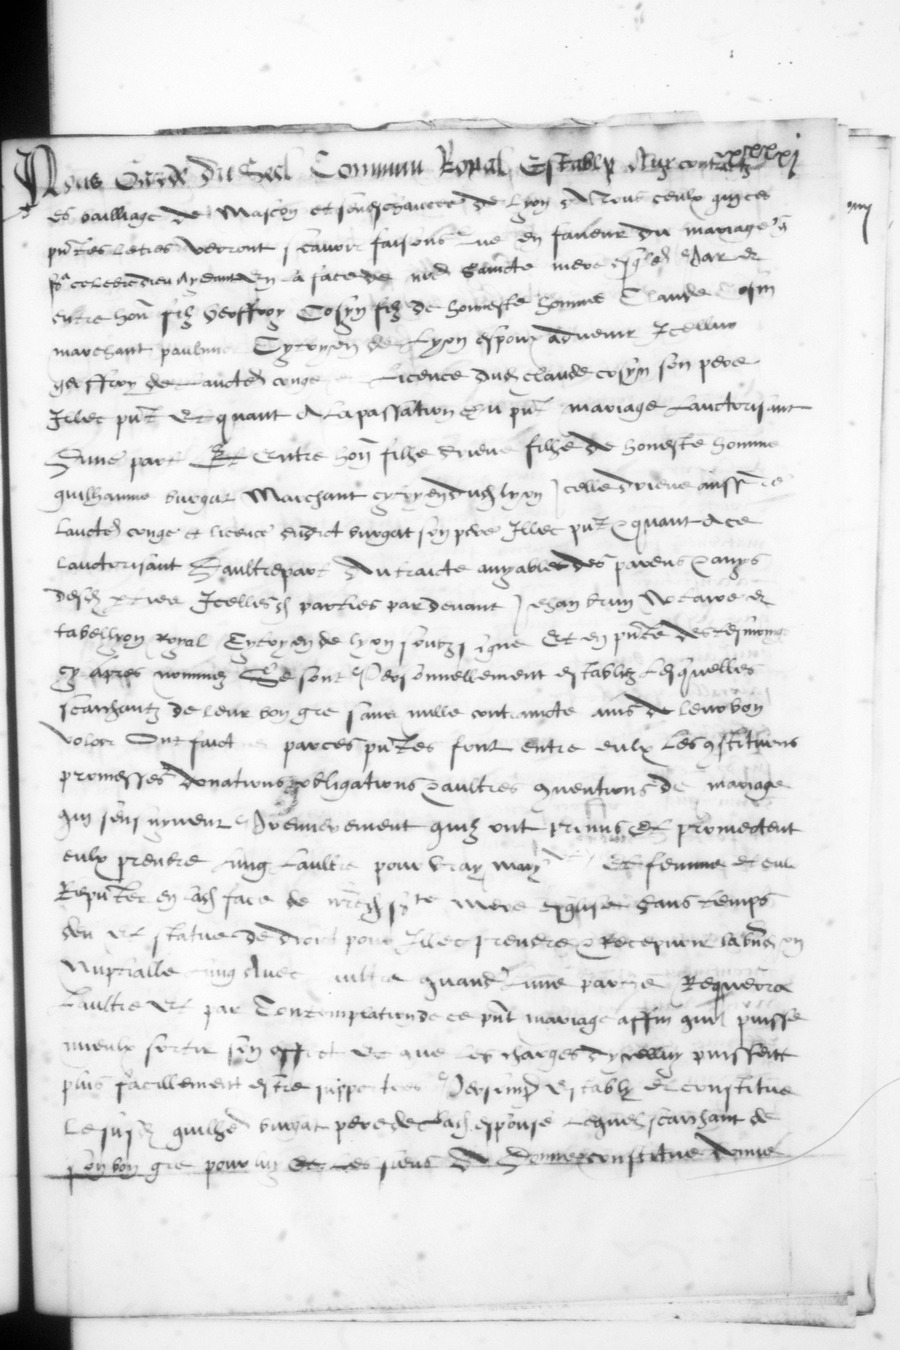 Nous Garde du Seel Commun Royal Establi Aux contraulx
es bailliage de Mascon et seneschaucee de Lyon A Tous ceulx qui ces
pntes letres verront scavoir faisons Que en faveur du mariage
celebre dieu aydant En la face de nre saincte mere esglise Par et
entre hon filz Geoffroy Cosyn filz de honneste homme Claude Cosin
marchant Cytoyen de Lyon espoux advenir Icelluy
geoffroy de laucte conge et Licence dud claude cosyn son pere
Illec pnt Et quant A la passation du pnt mariage Lauctorisant
Dune part Et Entre hon filhe filhe de honneste homme
guilhaume burgat Marchant cytoyen dud lyon Icelle aussi de
laucte conge et licence dudict burgat son pere Illec pnt quant Ace
lauctorisant Daultre part Du traicte amyable des parens amys
Icelles parties par devant Jehan brun Notaire et
tabellyon Royal Cytoyen de lyon soubzsigne Et en pnce des tesmoings
cy apres nommez Se sont Personnellement establiz Lesquelles
scaichantz de leur bon gre sans nulle contraincte ains de leur bon
voloir Ont faict par ces pntes font entre eulx Les constitutions
promesses donations obligations aultres conventions de mariage
qui sen suyvent Premierement quilz ont promis Et promectent
eulx prendre lung Laultre pour vray mary Et femme et eulx
en lad face de nred scte mere esglise dans temps
deu Et statue de droit pour Illec prendre Recepvoir la bned on
Nuptialle lung Avec laultre quand Lune partie Requerra
Laultre Et par Contemplation de ce pnt mariage affin quil puisse
mieulx sortir son effect Et que les charges dycelluy puissent
plus facillement estre supportees Personnel estably Et constitue
Le susd guilhe burgat pere de lad espouse Lequel scaichant de
son bon gre pour luy Et Les siens A Donne constitue donne